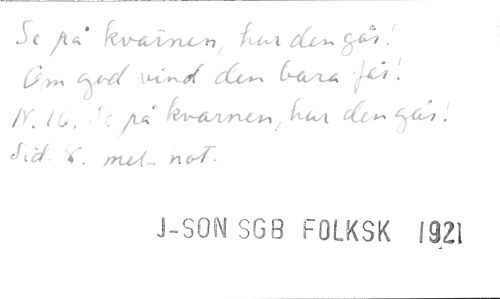 Se på kvarnen, hur den går!
Om god vind den bara får!
N. 16. Se på kvarnen, hur den går!
Sid. 8. mel. not.
J-SON SGB FOLKSK 1921